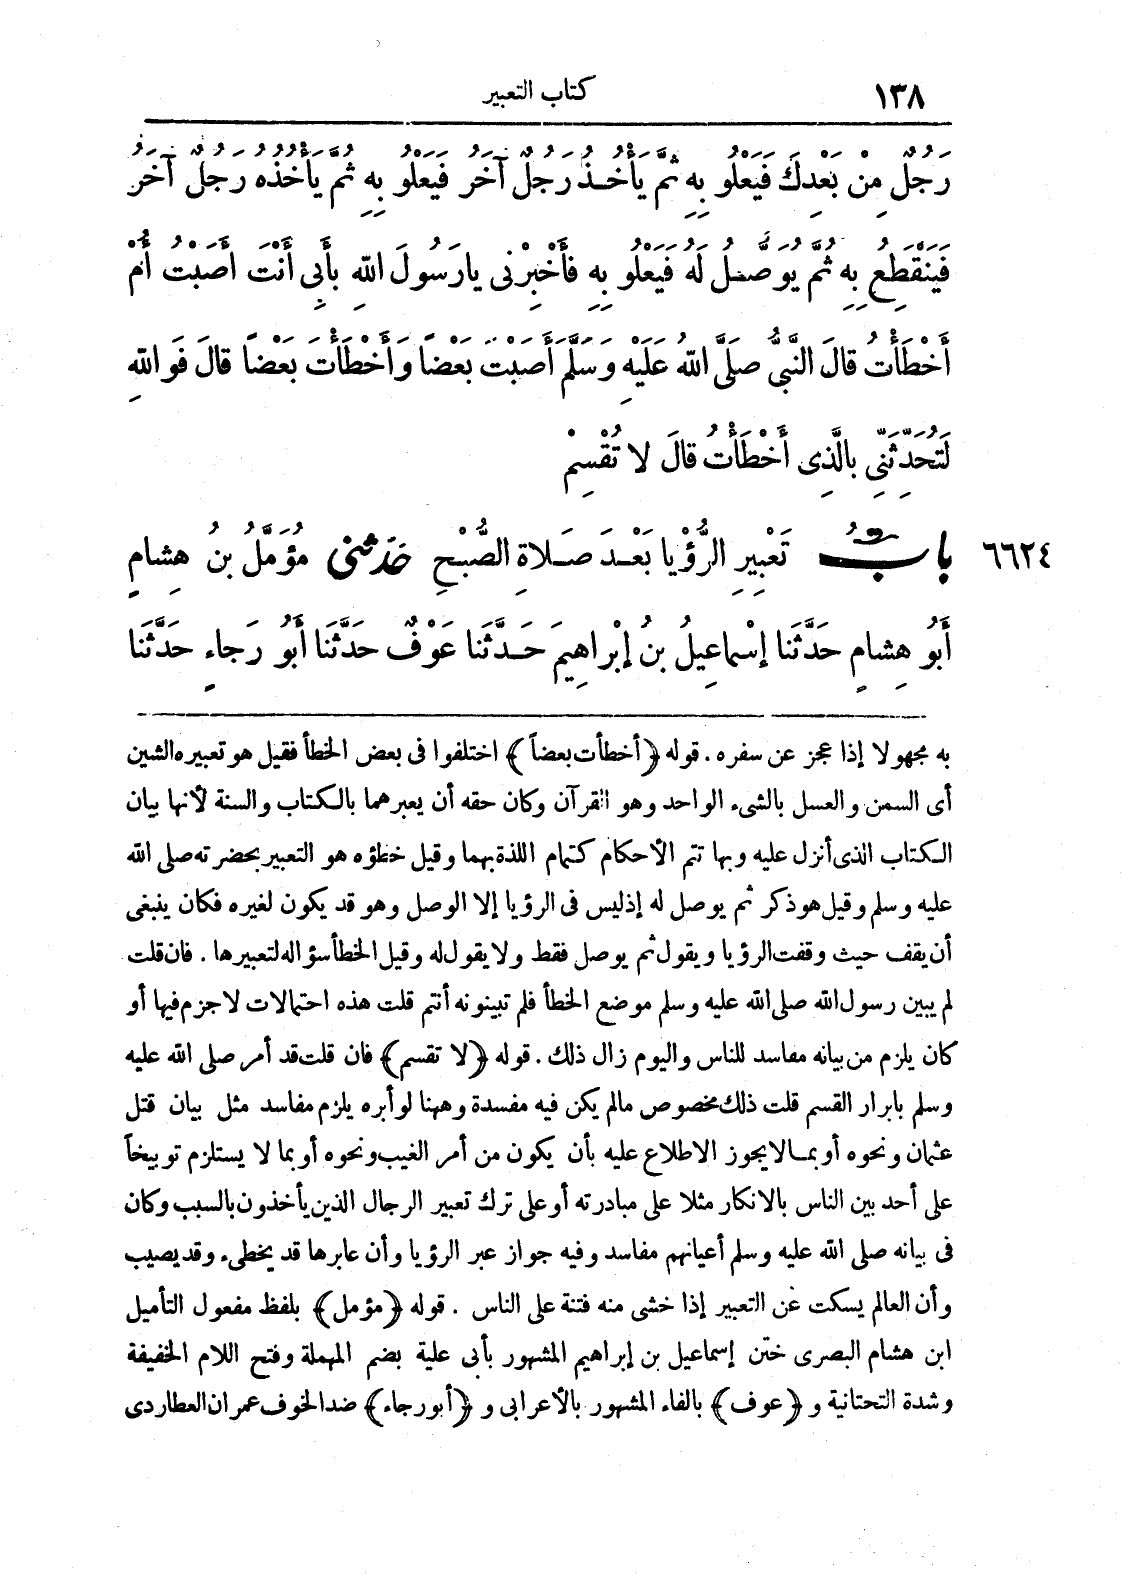 ١٣٨ كتاب التعبير
رَجُلٌ مِنْ بَعْدِكَ فَيَعْلُو بِهِ ثُمَّ يَأْخُذُ رَجُلٌ آخَرُ فَيَعْلُو بِهِ ثُمَّ يَأْخُذُهُ رَجُلٌ آخَرُ
فَيَنْقَطِعُ بِهِ ثُمَّ يُوَصَّلُ لَهُ فَيَعْلُو بِهِ فَأَخْبِرْنِى يارَسُولَ اللهِ بِأَبِى أَنْتَ أَصَبْتُ أَمْ
أَخْطَأْتُ قالَ النَّبِىُّ صلَّى اللهُ عَلَيْهِ وَسَلَّمَ أَصَبْتَ بَعْضاً وَأَخْطَأْتَ بَعْضاً قالَ فَوَاللهِ
لَتُحَدِّثَنِّى بِالَّذِى أَخْطَأْتُ قالَ لا تُقْسِمْ
٦٦٢٤ بابُ تَعْبِيرِ الرُّؤْيا بَعْدَ صَلاةِ الصُّبْحِ حَدَّثَنِى مُؤَمَّلُ بنُ هِشامٍ
أَبُو هِشامٍ حَدَّثَنا إِسْماعِيلُ بنُ إِبْراهِيمَ حَدَّثَنا عَوْفٌ حَدَّثَنا أَبُو رَجاءٍ حَدَّثَنا
به مجهولا إذا عجز عن سفره. قوله ﴿أخطأت بعضاً﴾ اختلفوا فى بعض الخطأ فقيل هو تعبيره الشين
أى السمن والعسل بالشىء الواحد وهو القرآن وكان حقه أن يعبرهما بالكتاب والسنة لأنها بيان
الكتاب الذى أنزل عليه وبها تتم الأحكام كتمام اللذة بهما وقيل خطؤه هو التعبير بحضرته صلى الله
عليه وسلم وقيل هو ذكر ثم يوصل له إذ ليس فى الرؤيا إلا الوصل وهو قد يكون لغيره فكان ينبغى
أن يقف حيث وقفت الرؤيا ويقول ثم يوصل فقط ولا يقول له وقيل الخطأ سؤاله لتعبيرها. فان قلت
لم يبين رسول الله صلى الله عليه وسلم موضع الخطأ فلم تبينونه أنتم قلت هذه احتمالات لا جزم فيها أو
كان يلزم من بيانه مفاسد للناس واليوم زال ذلك. قوله ﴿لا تقسم﴾ فان قلت قد أمر صلى الله عليه
وسلم بابرار القسم قلت ذلك مخصوص مالم يكن فيه مفسدة وههنا لو أبره يلزم مفاسد مثل بيان قتل
عثمان ونحوه أو بما لا يجوز الاطلاع عليه بأن يكون من أمر الغيب ونحوه أو بما لا يستلزم توبيخاً
على أحد بين الناس بالانكار مثلا على مبادرته أو على ترك تعبير الرجال الذين يأخذون بالسبب وكان
فى بيانه صلى الله عليه وسلم أعيانهم مفاسد وفيه جواز عبر الرؤيا وأن عابرها قد يخطىء وقد يصيب
وأن العالم يسكت عن التعبير إذا خشى منه فتنة على الناس. قوله ﴿مؤمل﴾ بلفظ مفعول التأميل
ابن هشام البصرى ختن إسماعيل بن إبراهيم المشهور بأبى علية بضم المهملة وفتح اللام الخفيفة
وشدة التحتانية و﴿عوف﴾ بالفاء المشهور بالأعرابى و﴿أبو رجاء﴾ ضد الخوف عمران العطاردى